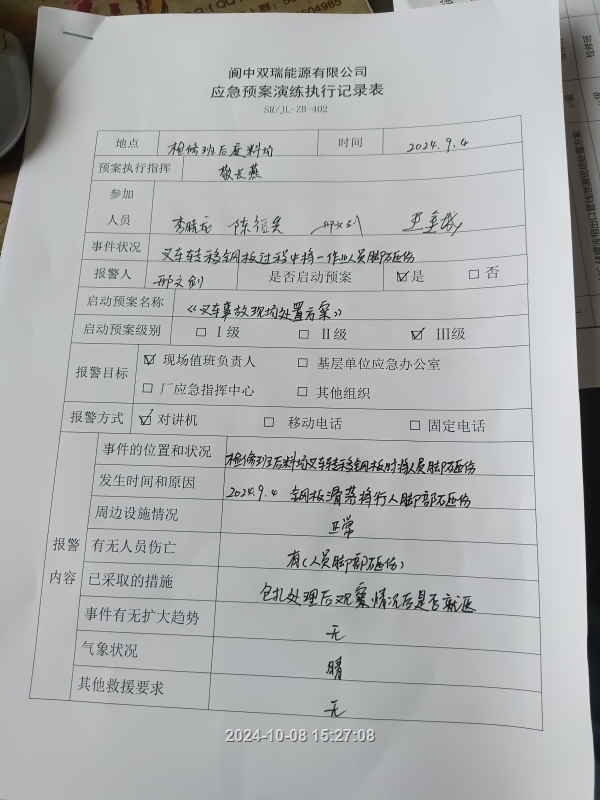 阆中双瑞能源有限公司
应急预案演练执行记录表
SR/JL-ZB-402
地点 检修班后废料场 时间 2024.9.4
预案执行指挥
参加
人员
事件状况 叉车转移钢板过程中将一作业人员脚砸伤
报警人 邢文剑 是否启动预案 ☑是 □ 否
启动预案名称 《叉车事故现场处置方案》
启动预案级别 □ Ⅰ级 □ Ⅱ级 ☑ Ⅲ级
报警目标 ☑ 现场值班负责人 □ 基层单位应急办公室
□ 厂应急指挥中心 □ 其他组织
报警方式 ☑ 对讲机 □ 移动电话 □ 固定电话
报警
内容
事件的位置和状况 检修班后料场叉车转移钢板时将人员脚砸伤
发生时间和原因 2024.9.4 钢板滑落将行人脚部砸伤
周边设施情况 正常
有无人员伤亡 有(人员脚部砸伤)
已采取的措施 包扎处理后观察情况后是否就医
事件有无扩大趋势 无
气象状况 晴
其他救援要求 无
2024-10-08 15:27:08